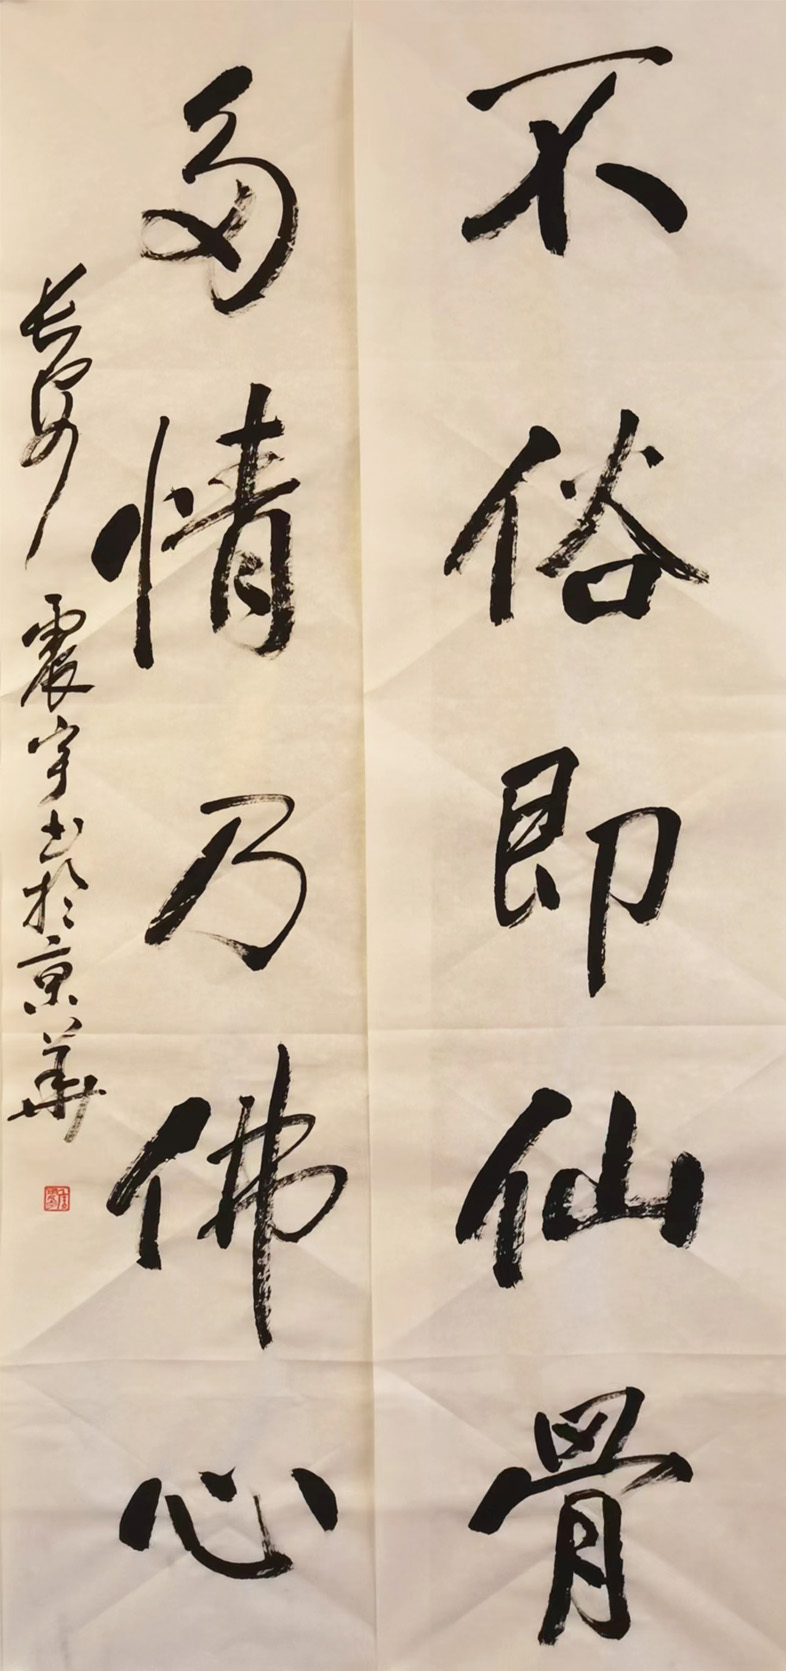 不俗即仙骨
多情乃佛心
长安 震宇书于京华